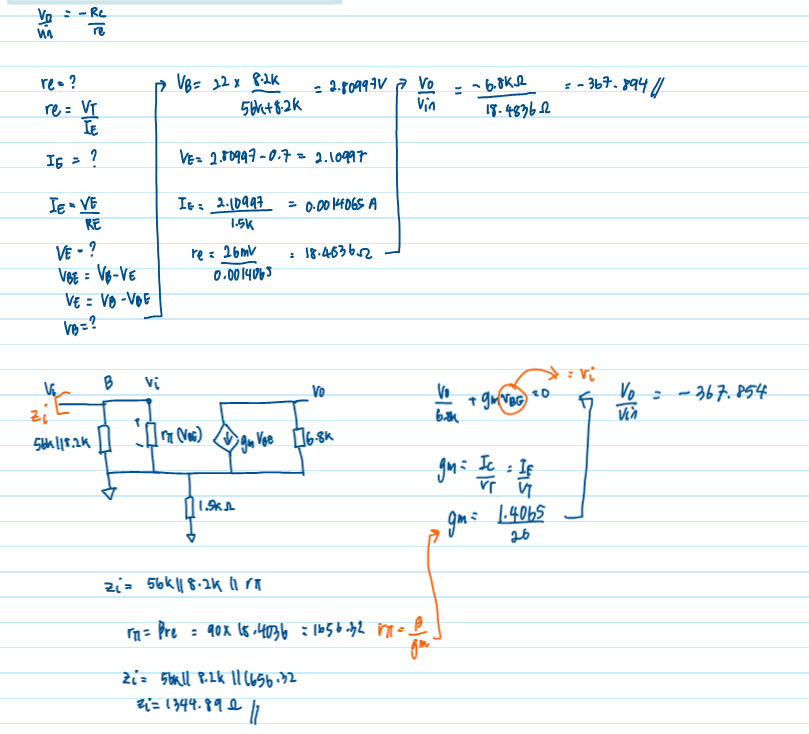 Vo/Vin = -Rc/re
re = ?
re = VT/IE
IE = ?
IE = VE/RE
VE = ?
VBE = VB-VE
VE = VB-VBE
VB = ?
VB = 22 x 8.2K/56K+8.2K = 2.80997V
VE = 2.80997-0.7 = 2.10997
IE = 2.10997/1.5K = 0.0014065 A
re = 26mV/0.0014065 = 18.4836Ω
Vo/Vin = -6.8KΩ/18.4836Ω = -367.894 //
B Vi Vo
Zi
56K||8.2K + - rπ (VBE) gm VBE 6.8K
1.5KΩ
Vo/6.8K + gm VBE = 0 = Vi
Vo/Vin = -367.854
gm = Ic/VT = IE/VT
gm = 1.4065/26
Zi = 56K || 8.2K || rπ
rπ = Bre = 90 x 18.4036 = 1656.32 rπ = B/gm
Zi = 56K || 8.2K || 1656.32
Zi = 1344.89 Ω //